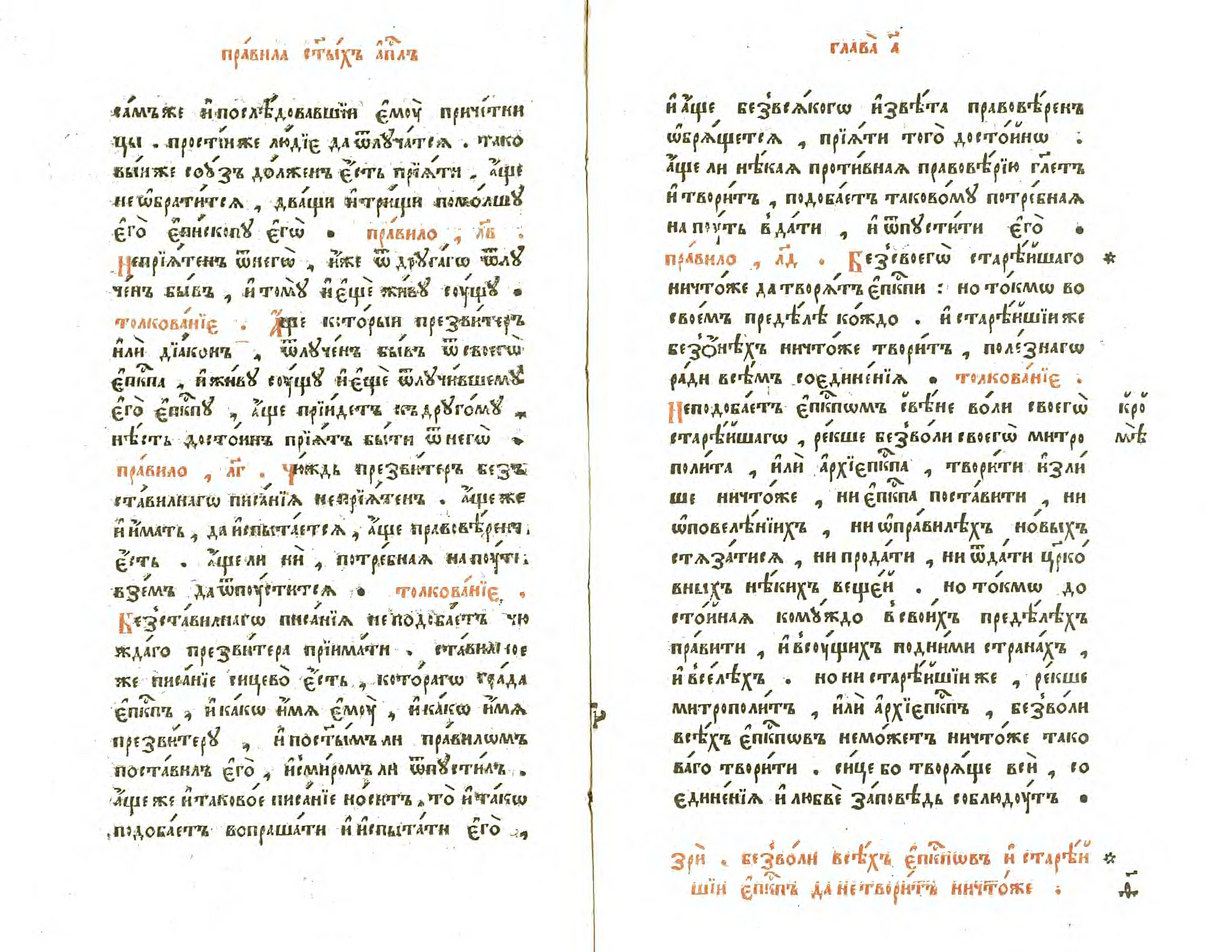 пра́вила ст҃ы́хъ а҆п҃лъ
са́мъ же и҆ послѣ́довавшїи є҆моу̀ приче́тни
цы . простїи же лю́дїе да ѿлуча́тсѧ . тако
вы́и же соу́зъ до́лженъ є҆́сть прїѧ́ти , а҆́ще
не ѡ҆брати́тсѧ , два́щи и҆ три́щи помо́лшу
є҆го̀ є҆пи́скопу є҆гѡ̀ • пра́вило , л҃в .
Непрїѧ́тенъ ѿ негѡ̀ , и҆́же ѿ друга́гѡ ѿлу
че́нъ бы́въ , и҆ то́му и҆ є҆щѐ жи́ву соу́щу •
толкова́нїе . А҆́ще кото́рыи презви́теръ
и҆лѝ дїа́конъ , ѿлуче́нъ бы́въ ѿ своегѡ̀
є҆п҃кпа , и҆ жи́ву соу́щу и҆ є҆щѐ ѿлучи́вшему
є҆го̀ є҆п҃кпу , а҆́ще прїи́детъ къ друго́му ,
нѣ́сть досто́инъ прїѧ́тъ бы́ти ѿ негѡ̀ •
пра́вило , л҃г . Чю́ждь презви́теръ безъ
ста́вилнагѡ писа́нїѧ непрїѧ́тенъ . а҆́ще же
и҆ и҆́мать , да и҆спыта́етсѧ , а҆́ще правовѣ́ренъ
є҆́сть . а҆́ще ли нѝ , потре́бнаѧ на поу́ть
взе́мъ да ѿпоу́ститсѧ • толкова́нїе .
Без̾ ста́вилнагѡ писа́нїѧ не подоба́етъ чю
жда́го презви́тера прїима́ти . ста́вилное
же писа́нїе сицево̀ є҆́сть , кото́рагѡ гра́да
є҆п҃кпъ , и҆ ка́кѡ и҆́мѧ є҆моу̀ , и҆ ка́кѡ и҆́мѧ
презви́теру , и҆ по ст҃ы́мъ ли пра́вилѡмъ
поста́вилъ є҆го̀ , и҆ с̾ми́ромъ ли ѿпусти́лъ .
а҆́ще же и҆ таково́е писа́нїе но́ситъ , то̀ и҆ та́кѡ
подоба́етъ вопраша́ти и҆ и҆спыта́ти є҆го̀ ,
глава̀ а҃
и҆ а҆́ще без̾ всѧ́когѡ и҆звѣ́та правовѣ́ренъ
ѡ҆брѧ́щетсѧ , прїѧ́ти того̀ досто́йнѡ :
а҆́ще ли нѣ́каѧ проти́внаѧ правовѣ́рїю гл҃етъ
и҆ твори́тъ , подоба́етъ таково́му потре́бнаѧ
на поу́ть в̾да́ти , и҆ ѿпусти́ти є҆го̀ •
пра́вило , л҃д . Без̾ своегѡ̀ старѣ́йшаго *
ничто́же да творѧ́тъ є҆п҃кпи : но то́кмѡ во
свое́мъ предѣ́лѣ ко́ждо . и҆ старѣ́йшїи же
без̾ ѻ҆нѣ́хъ ничто́же твори́тъ , поле́знагѡ
ра́ди всѣ́мъ соедине́нїѧ • толкова́нїе .
Не подоба́етъ є҆п҃кпѡмъ свѣ́не во́ли своегѡ̀ кро
старѣ́йшагѡ , ре́кше без̾ во́ли своегѡ̀ митро мѣ
поли́та , и҆лѝ а҆рхїеп҃кпа , твори́ти и҆зли
ше ничто́же , ни є҆п҃кпа поста́вити , ни
ѡ҆ повелѣ́нїихъ , ни ѡ҆ пра́вилѣхъ но́выхъ
стѧза́тисѧ , ни прода́ти , ни ѿда́ти цр҃ко
вныхъ нѣ́кихъ веще́й . но то́кмѡ до
сто́йнаѧ кому́ждо в̾ свои́хъ предѣ́лѣхъ
пра́вити , и҆ в̾ соу́щихъ под̾ ни́ми страна́хъ ,
и҆ в̾ се́лѣхъ . но ни старѣ́йшїи же , ре́кше
митрополи́тъ , и҆лѝ а҆рхїеп҃кпъ , без̾ во́ли
всѣ́хъ є҆п҃кпѡвъ не мо́жетъ ничто́же тако
ва́го твори́ти . си́це бо творѧ́ще всѝ , со
єдине́нїѧ и҆ любвѐ за́повѣдь соблюдоу́тъ •
зрѝ . без̾ во́ли всѣ́хъ є҆п҃кпѡвъ и҆ старѣ́й *
шїи є҆п҃кпъ да не твори́тъ ничто́же :